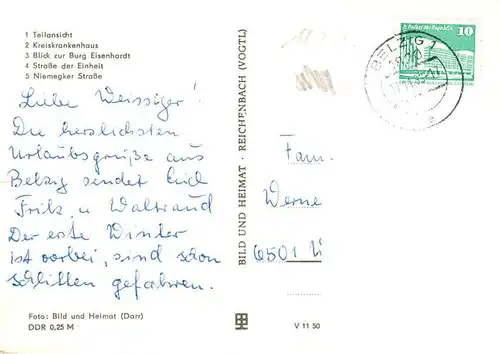 1 Teilansicht
2 Kreiskrankenhaus
3 Blick zur Burg Eisenhardt
4 Straße der Einheit
5 Niemegker Straße
Liebe Weissiger!
Die herzlichsten
Urlaubsgrüße aus
Belzig sendet Euch
Fritz u Waltraud
Der erste Winter
ist vorbei, sind schon
schlitten gefahren.
Foto: Bild und Heimat (Darr)
DDR 0,25 M
BILD UND HEIMAT · REICHENBACH (VOGTL)
V 11 50
BELZIG 1
10
Fam.
Werne
6501